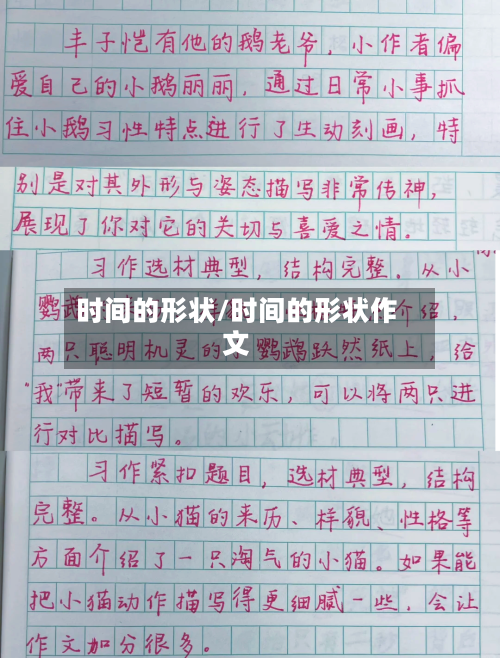 丰子恺有他的鹅老爷，小作者偏
爱自己的小鹅丽丽，通过日常小事抓
住小鹅习性特点进行了生动刻画，特
别是对其外形与姿态描写非常传神，
展现了你对它的关切与喜爱之情。
习作选材典型，结构完整。从小
鹦鹉 介绍，
时间的形状/时间的形状作
文
两只聪明机灵的小鹦鹉跃然纸上，给
“我”带来了短暂的欢乐，可以将两只进
行对比描写。
习作紧扣题目，选材典型，结构
完整。从小猫的来历、样貌、性格等
方面介绍了一只淘气的小猫。如果能
把小猫动作描写得更细腻一些，会让
作文加分很多。